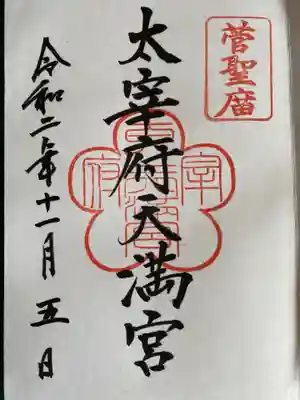 菅聖廟
太宰府天満宮
令和二年十一月五日